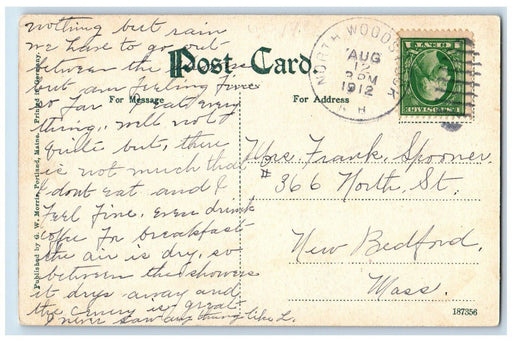 nothing but rain
we have to go out
between the
but am feeling fine
so far I eat every
thing, will not
quite but, there
is not much that
I dont eat and I
feel fine, even drink
coffee for breakfast
the air is dry, so
between the showers
it drys away and
the is great
I never saw anything like I.
Post Card
For Message
For Address
Published by G. W. Morris, Portland, Maine. Printed in Germany.
NORTH WOODSTOCK
AUG
12
3 PM
1912
N H
Mrs Frank Spooner
# 366 North St.
New Bedford
Mass.
187356